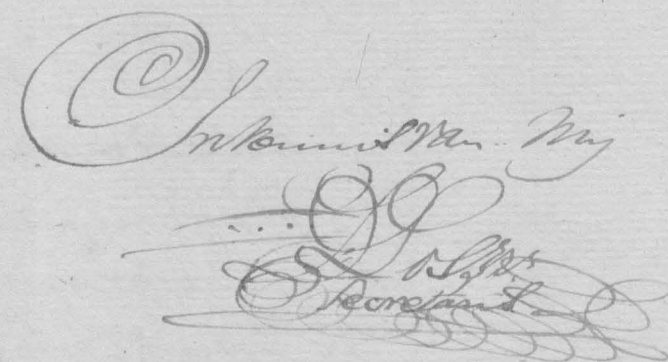 In kennis van Mij
Secretaris